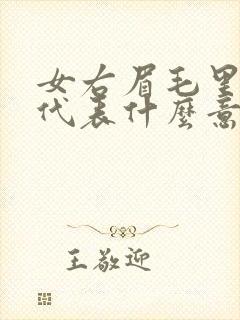 女右眉毛里
代表什麼意
王敬迎